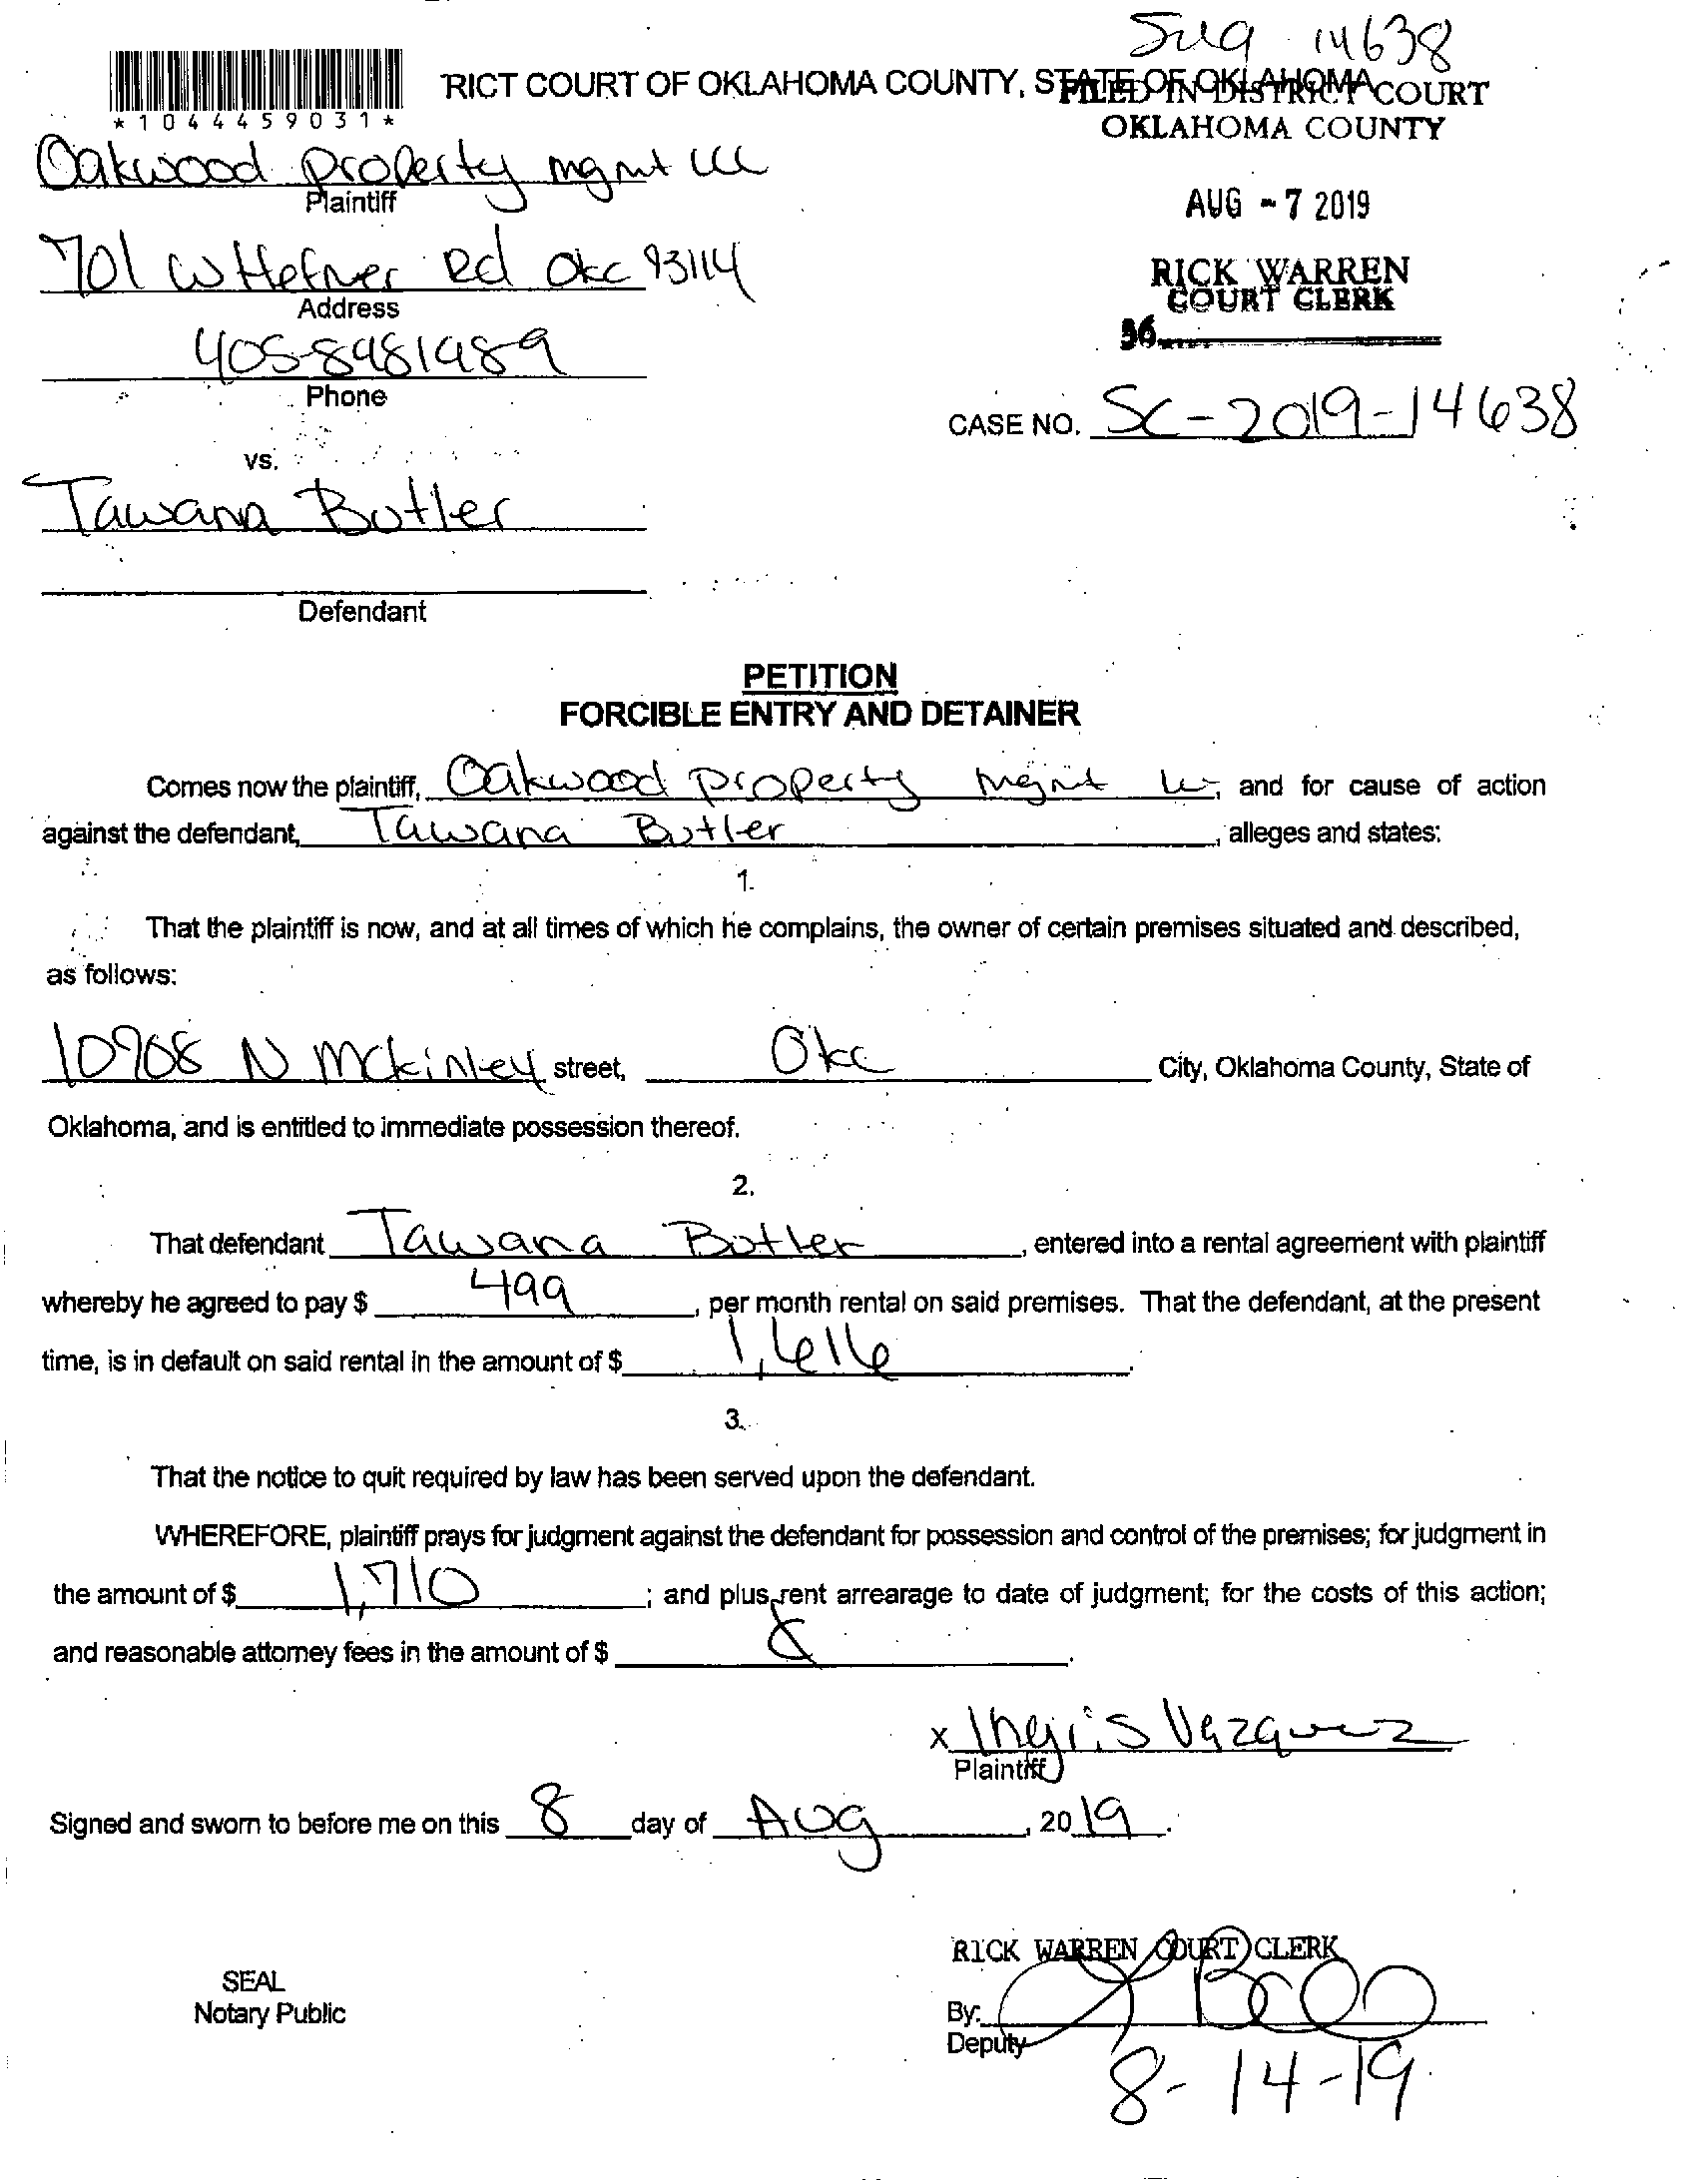 Sug 14638
RICT COURT OF OKLAHOMA COUNTY, STATE OF OKLAHOMA
FILED IN DISTRICT COURT
OKLAHOMA COUNTY
*1044459031*
Oakwood property mgmt LLC
Plaintiff
AUG - 7 2019
701 W Hefner Rd Okc 73114
Address
RICK WARREN
COURT CLERK
405-8481489
Phone
CASE NO. SC-2019-14638
vs.
Tawana Butler
Defendant
PETITION
FORCIBLE ENTRY AND DETAINER
Comes now the plaintiff, Oakwood property Mgmt LLC, and for cause of action
against the defendant, Tawana Butler, alleges and states:
1.
That the plaintiff is now, and at all times of which he complains, the owner of certain premises situated and described,
as follows:
10908 N Mckinley street, Okc City, Oklahoma County, State of
Oklahoma, and is entitled to immediate possession thereof.
2.
That defendant Tawana Butler, entered into a rental agreement with plaintiff
whereby he agreed to pay $ 499, per month rental on said premises. That the defendant, at the present
time, is in default on said rental in the amount of $ 1,616.
3.
That the notice to quit required by law has been served upon the defendant.
WHEREFORE, plaintiff prays for judgment against the defendant for possession and control of the premises; for judgment in
the amount of $ 1,710; and plus rent arrearage to date of judgment; for the costs of this action;
and reasonable attorney fees in the amount of $
x Ingris Vazquez
Plaintiff
Signed and sworn to before me on this 8 day of Aug, 2019.
RICK WARREN COURT CLERK
SEAL
Notary Public
By:
Deputy
8-14-19